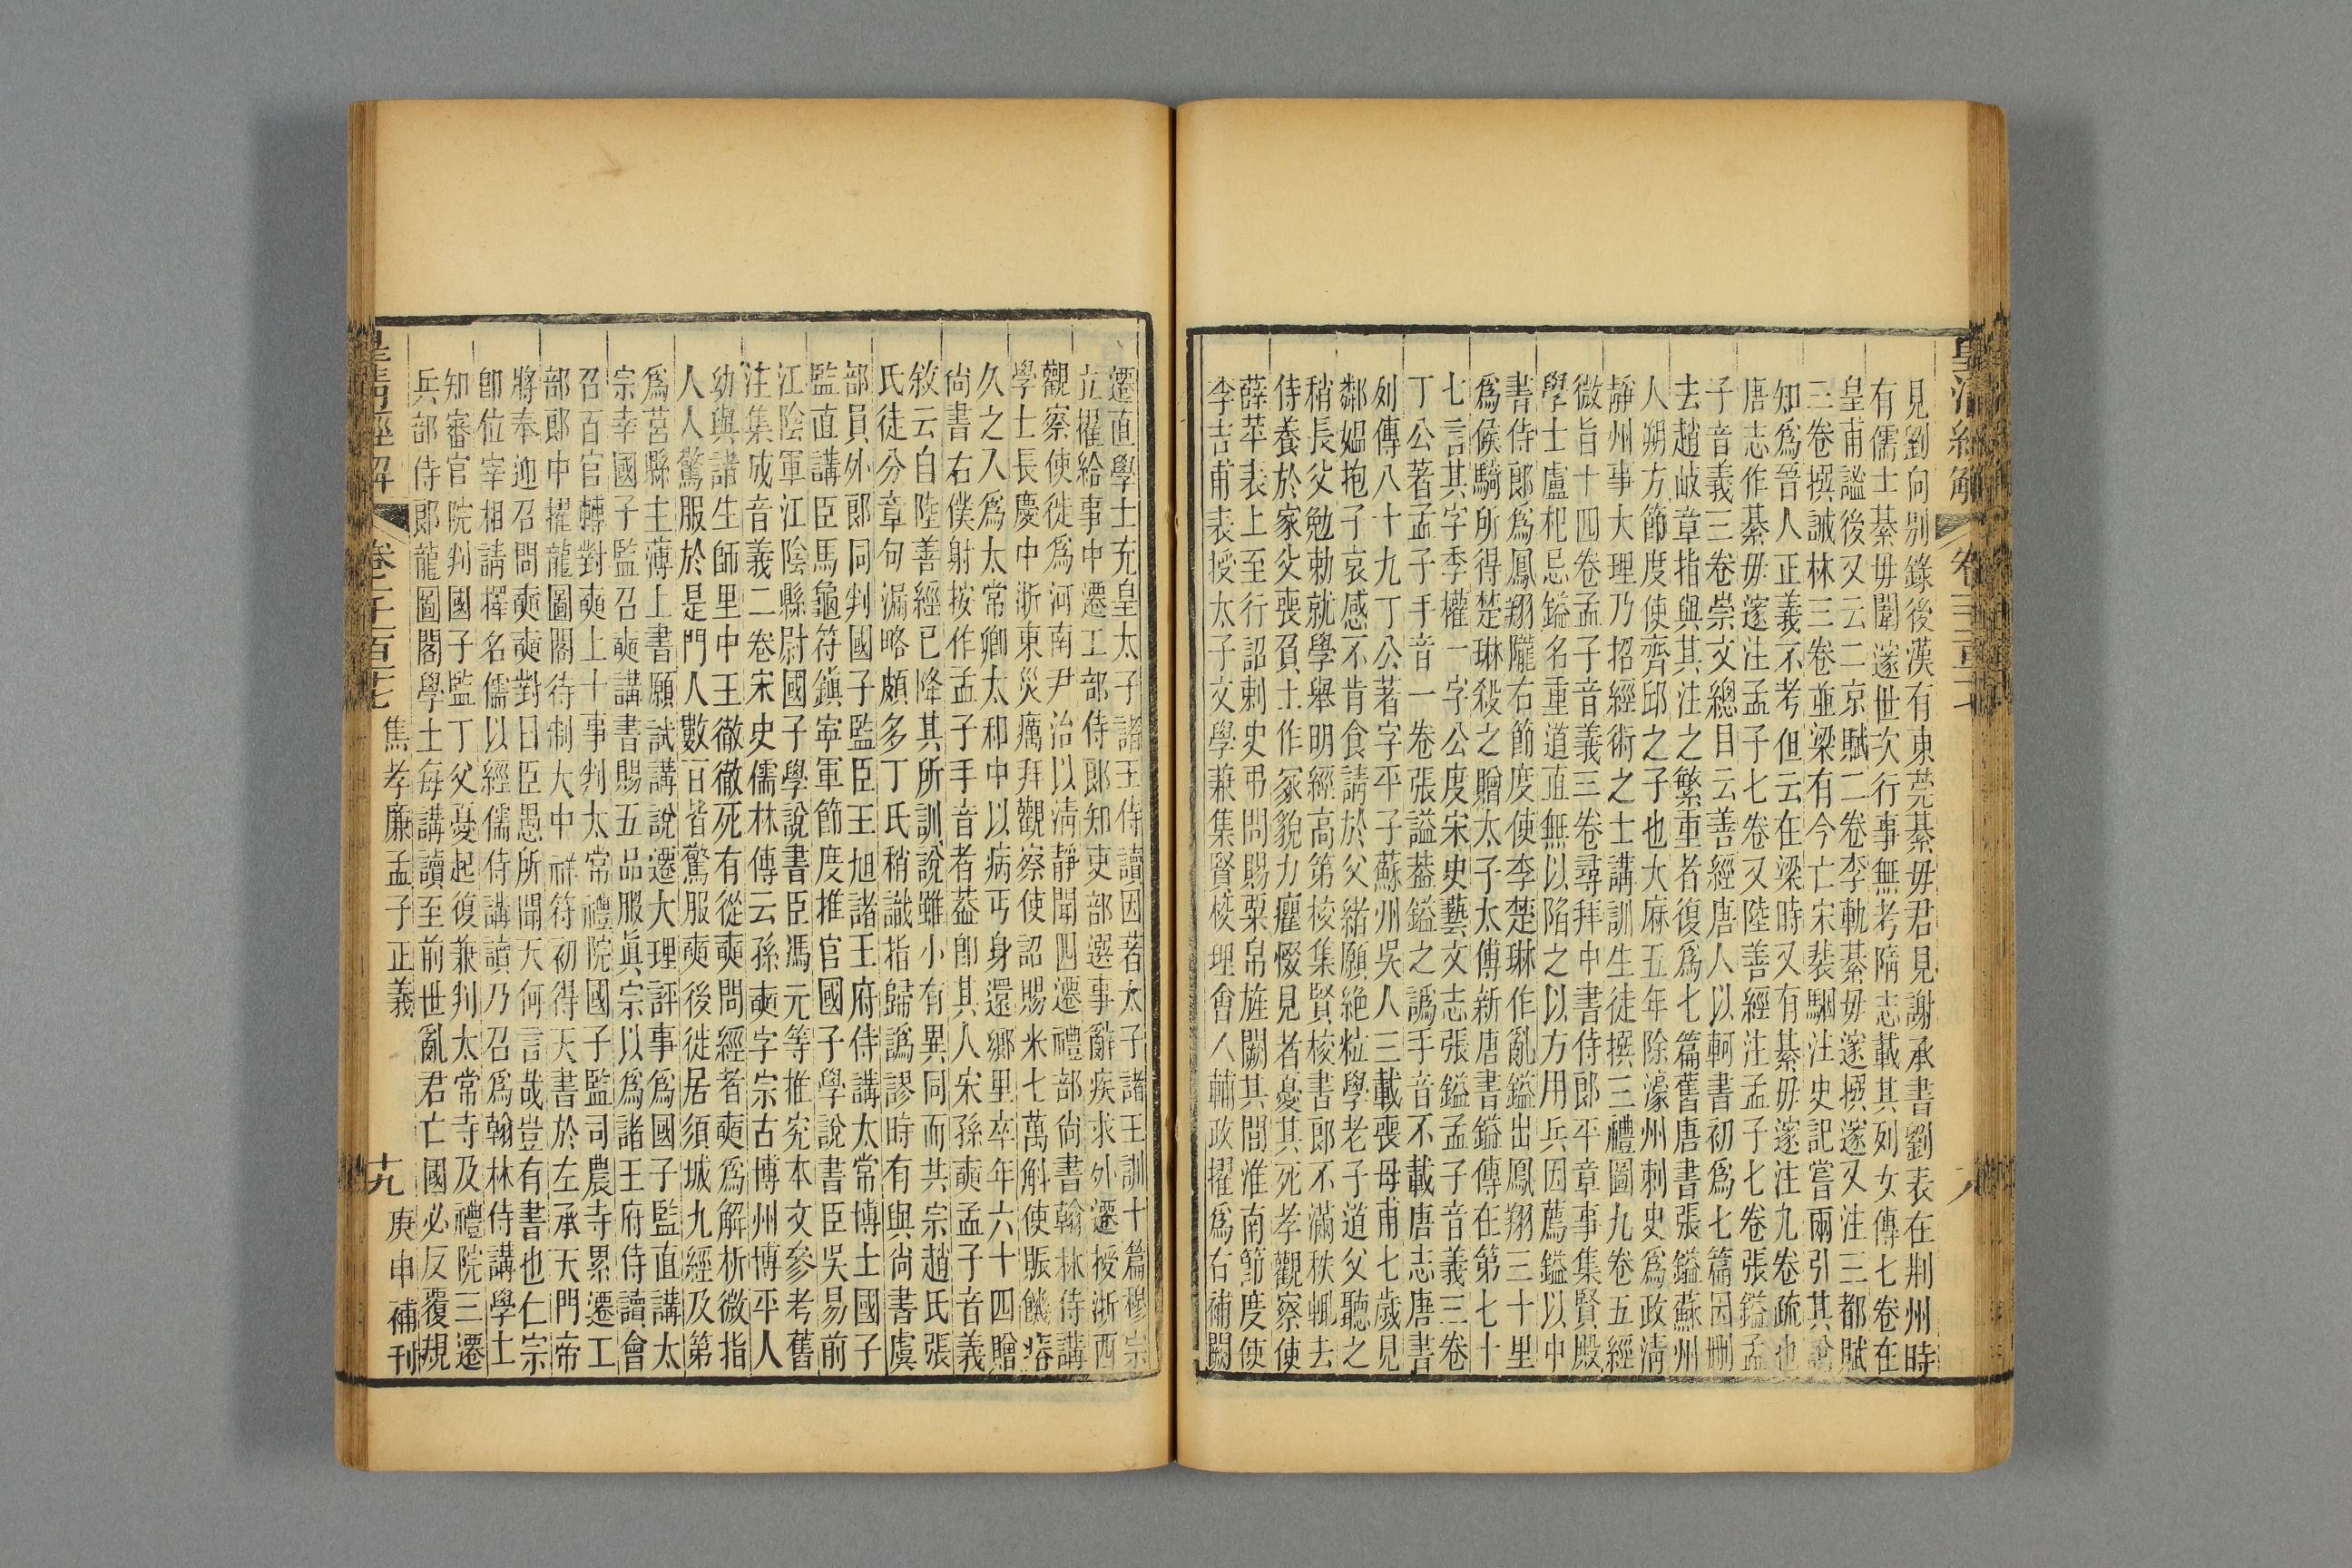 見劉向别錄後漢有東莞綦毋君見謝承書劉表在荆州時
有儒士綦毋闓邃世次行事無考隋志載其列女傳七卷在
皇甫謐後又云二京賦二卷李軌綦毋邃撰邃又注三都賦
三卷撰誡林三卷並梁有今亡宋裴駰注史記嘗兩引其說
知爲晉人正義不考但云在梁時又有綦毋邃注九卷疏也
唐志作綦毋邃注孟子七卷又陸善經注孟子七卷張鎰孟
子音義三卷崇文總目云善經唐人以軻書初爲七篇因删
去趙岐章指與其注之繁重者復爲七篇舊唐書張鎰蘇州
人朔方節度使齊邱之子也大麻五年除濠州刺史爲政淸
靜州事大理乃招經術之士講訓生徒撰三禮圖九卷五經
微旨十四卷孟子音義三卷尋拜中書侍郎平章事集賢殿
學士盧杞忌鎰名重道直無以陷之以方用兵因薦鎰以中
書侍郎爲鳳翔隴右節度使李楚琳作亂鎰出鳳翔三十里
爲候騎所得楚琳殺之贈太子太傅新唐書鎰傳在第七十
七言其字季權一字公度宋史藝文志張鎰孟子音義三卷
丁公著孟子手音一卷張謚葢鎰之譌手音不載唐志唐書
列傳八十九丁公著字平子蘇州吳人三載喪母甫七歲見
鄰媼抱子哀感不肯食請於父緒願絶粒學老子道父聽之
稍長父勉勅就學舉明經高第校集賢校書郎不滿秩輒去
侍養於家父喪負土作冢貌力癯惙見者憂其死孝觀察使
薛苹表上至行詔刺史弔問賜粟帛旌闕其閭淮南節度使
李吉甫表授太子文學兼集賢校理會入輔政擢爲右補闕
皇淸經解
遷直學士充皇太子諸王侍讀因著太子諸王訓十篇穆宗
立擢給事中遷工部侍郎知吏部選事辭疾求外遷授浙西
觀察使徙爲河南尹治以淸靜聞四遷禮部尙書翰林侍講
學士長慶中浙東災癘拜觀察使詔賜米七萬斛使賑饑瘠
久之入爲太常卿太和中以病丐身還鄉里卒年六十四贈
尙書右僕射按作孟子手音者葢卽其人宋孫奭孟子音義
敘云自陸善經已降其所訓說雖小有異同而共宗趙氏張
氏徒分章句漏略頗多丁氏稍識指歸譌謬時有與尙書虞
部員外郎同判國子監臣王旭諸王府侍講太常博士國子
監直講臣馬龜符鎭寧軍節度推官國子學說書臣吳易前
江陰軍江陰縣尉國子學說書臣馮元等推究本文參考舊
注集成音義二卷宋史儒林傳云孫奭字宗古博州博平人
幼與諸生師里中王徹徹死有從奭問經者奭爲解析微指
人人驚服於是門人數百皆驚服奭後徙居須城九經及第
爲莒縣主薄上書願試講說遷大理評事爲國子監直講太
宗幸國子監召奭講書賜五品服眞宗以爲諸王府侍讀會
召百官轉對奭上十事判太常禮院國子監司農寺累遷工
部郎中擢龍圖閣待制大中祥符初得天書於左承天門帝
將奉迎召問奭奭對曰臣愚所聞天何言哉豈有書也仁宗
卽位宰相請擇名儒以經儒侍講讀乃召爲翰林侍講學士
知審官院判國子監丁父憂起復兼判太常寺及禮院三遷
兵部侍郎龍圖閣學士每講讀至前世亂君亡國必反覆規
焦孝廉孟子正義
庚申補刊